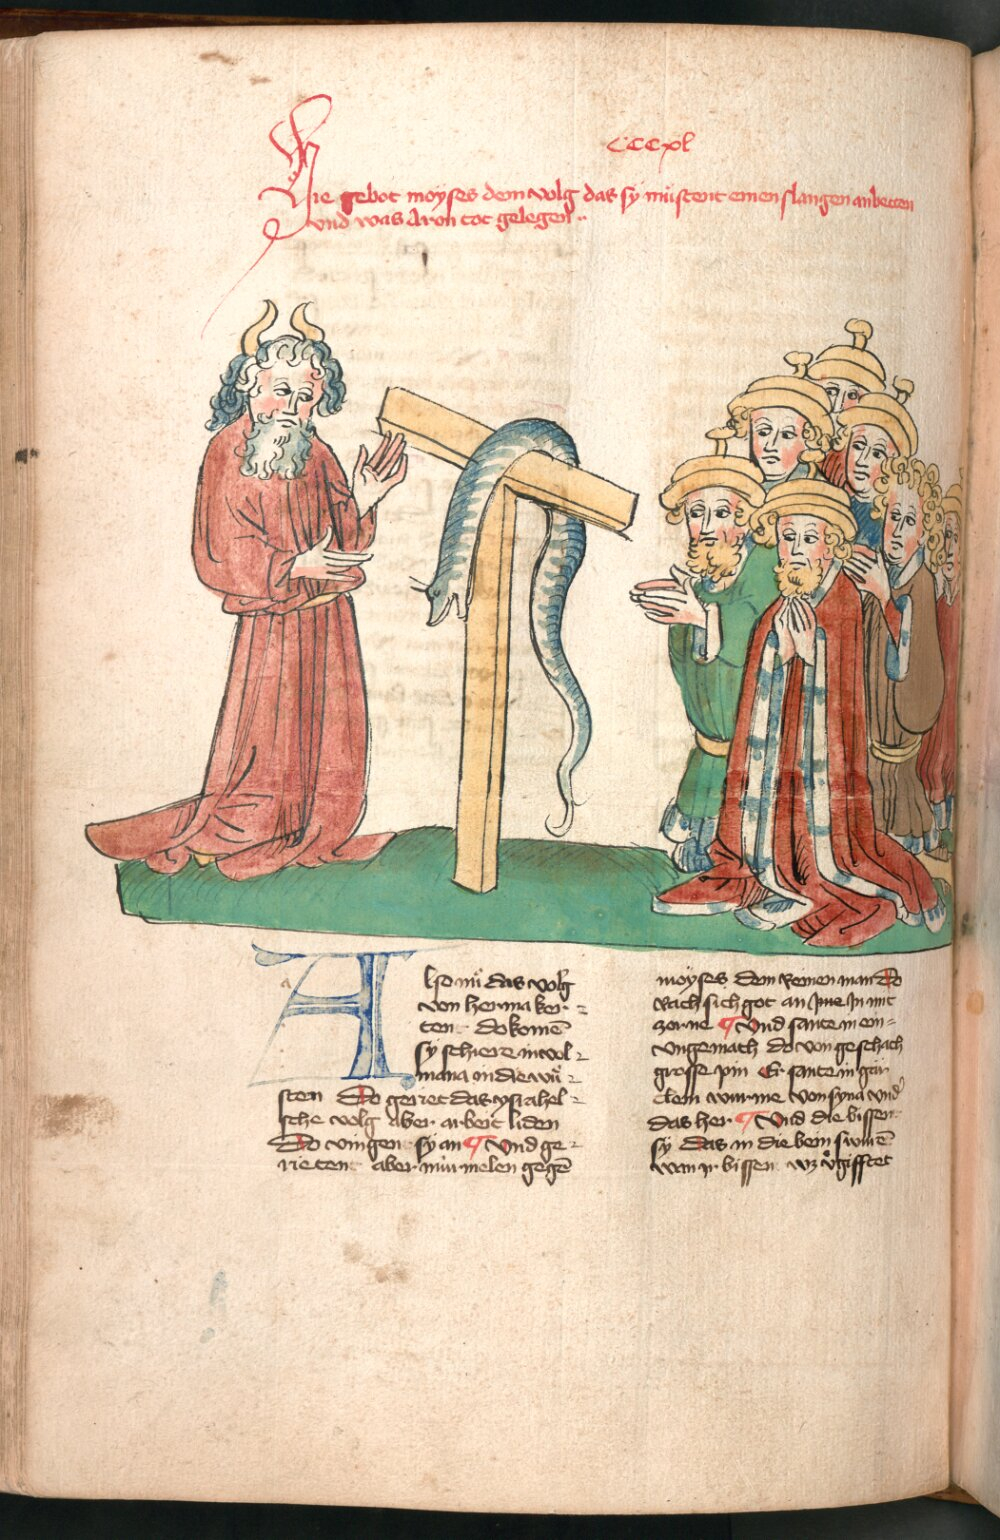 CCCxl
Hie gebot moyses dem volg das sy mũstent einen slangen anbetten
vnd was Aron tot gelegen
Also nů das volg
von herma ker-
tent do komē
sy schiere in vol-
mana in die wů-
sten Do geriet das ysrahel-
sche volg aber arbeit liden
Do vingent sy an ¶ Vnd ge-
rietent aber murmelen gegē
moyses dem reinen man Do
Rach sich got an Jme Jn mit
zorne ¶ Vnd sante in ein-
vngemach do von geschach
grosse pin Er sante in gar
clein wurme von syna vnd
das her ¶ Vnd die bissen
sy das in die bein swinē
wan jr bissen wz v̊gifftet